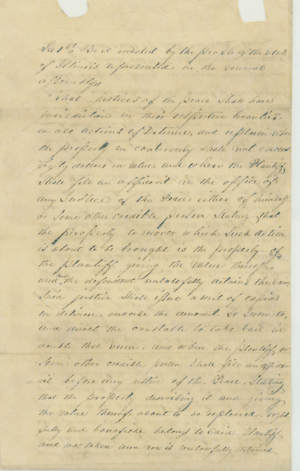 Sec 1st Be it enacted by the people of the state
of Illinois represented in the General
Assembly
That justices of the peace shall have
jurisdiction in their respective counties
in all actions of Detinue, and replevin when
the property in controversy shall not exceed
dollars in value and where the Plaintiff
Shall file an affidavit in the office of
any Justice of the Peace either of himself
or some other credible person Stating that
the property to recover which such action
is about to be brought is the property of
the plaintiff giving the value thereof
and the defendant unlawfully detains the same
Said justice shall issue a writ of capias
in detinue, endorse the amount so sworn to,
and direct the constable to take bail in
double that sum. and when the plaintiff or
Some other credible person shall file an affida-
vit before any Justice of the Peace Stating
that the property describing it and giving
the value thereof about to be replevied
and bonafide belongs to said Plaintiff
and was taken and now is unlawfully detained